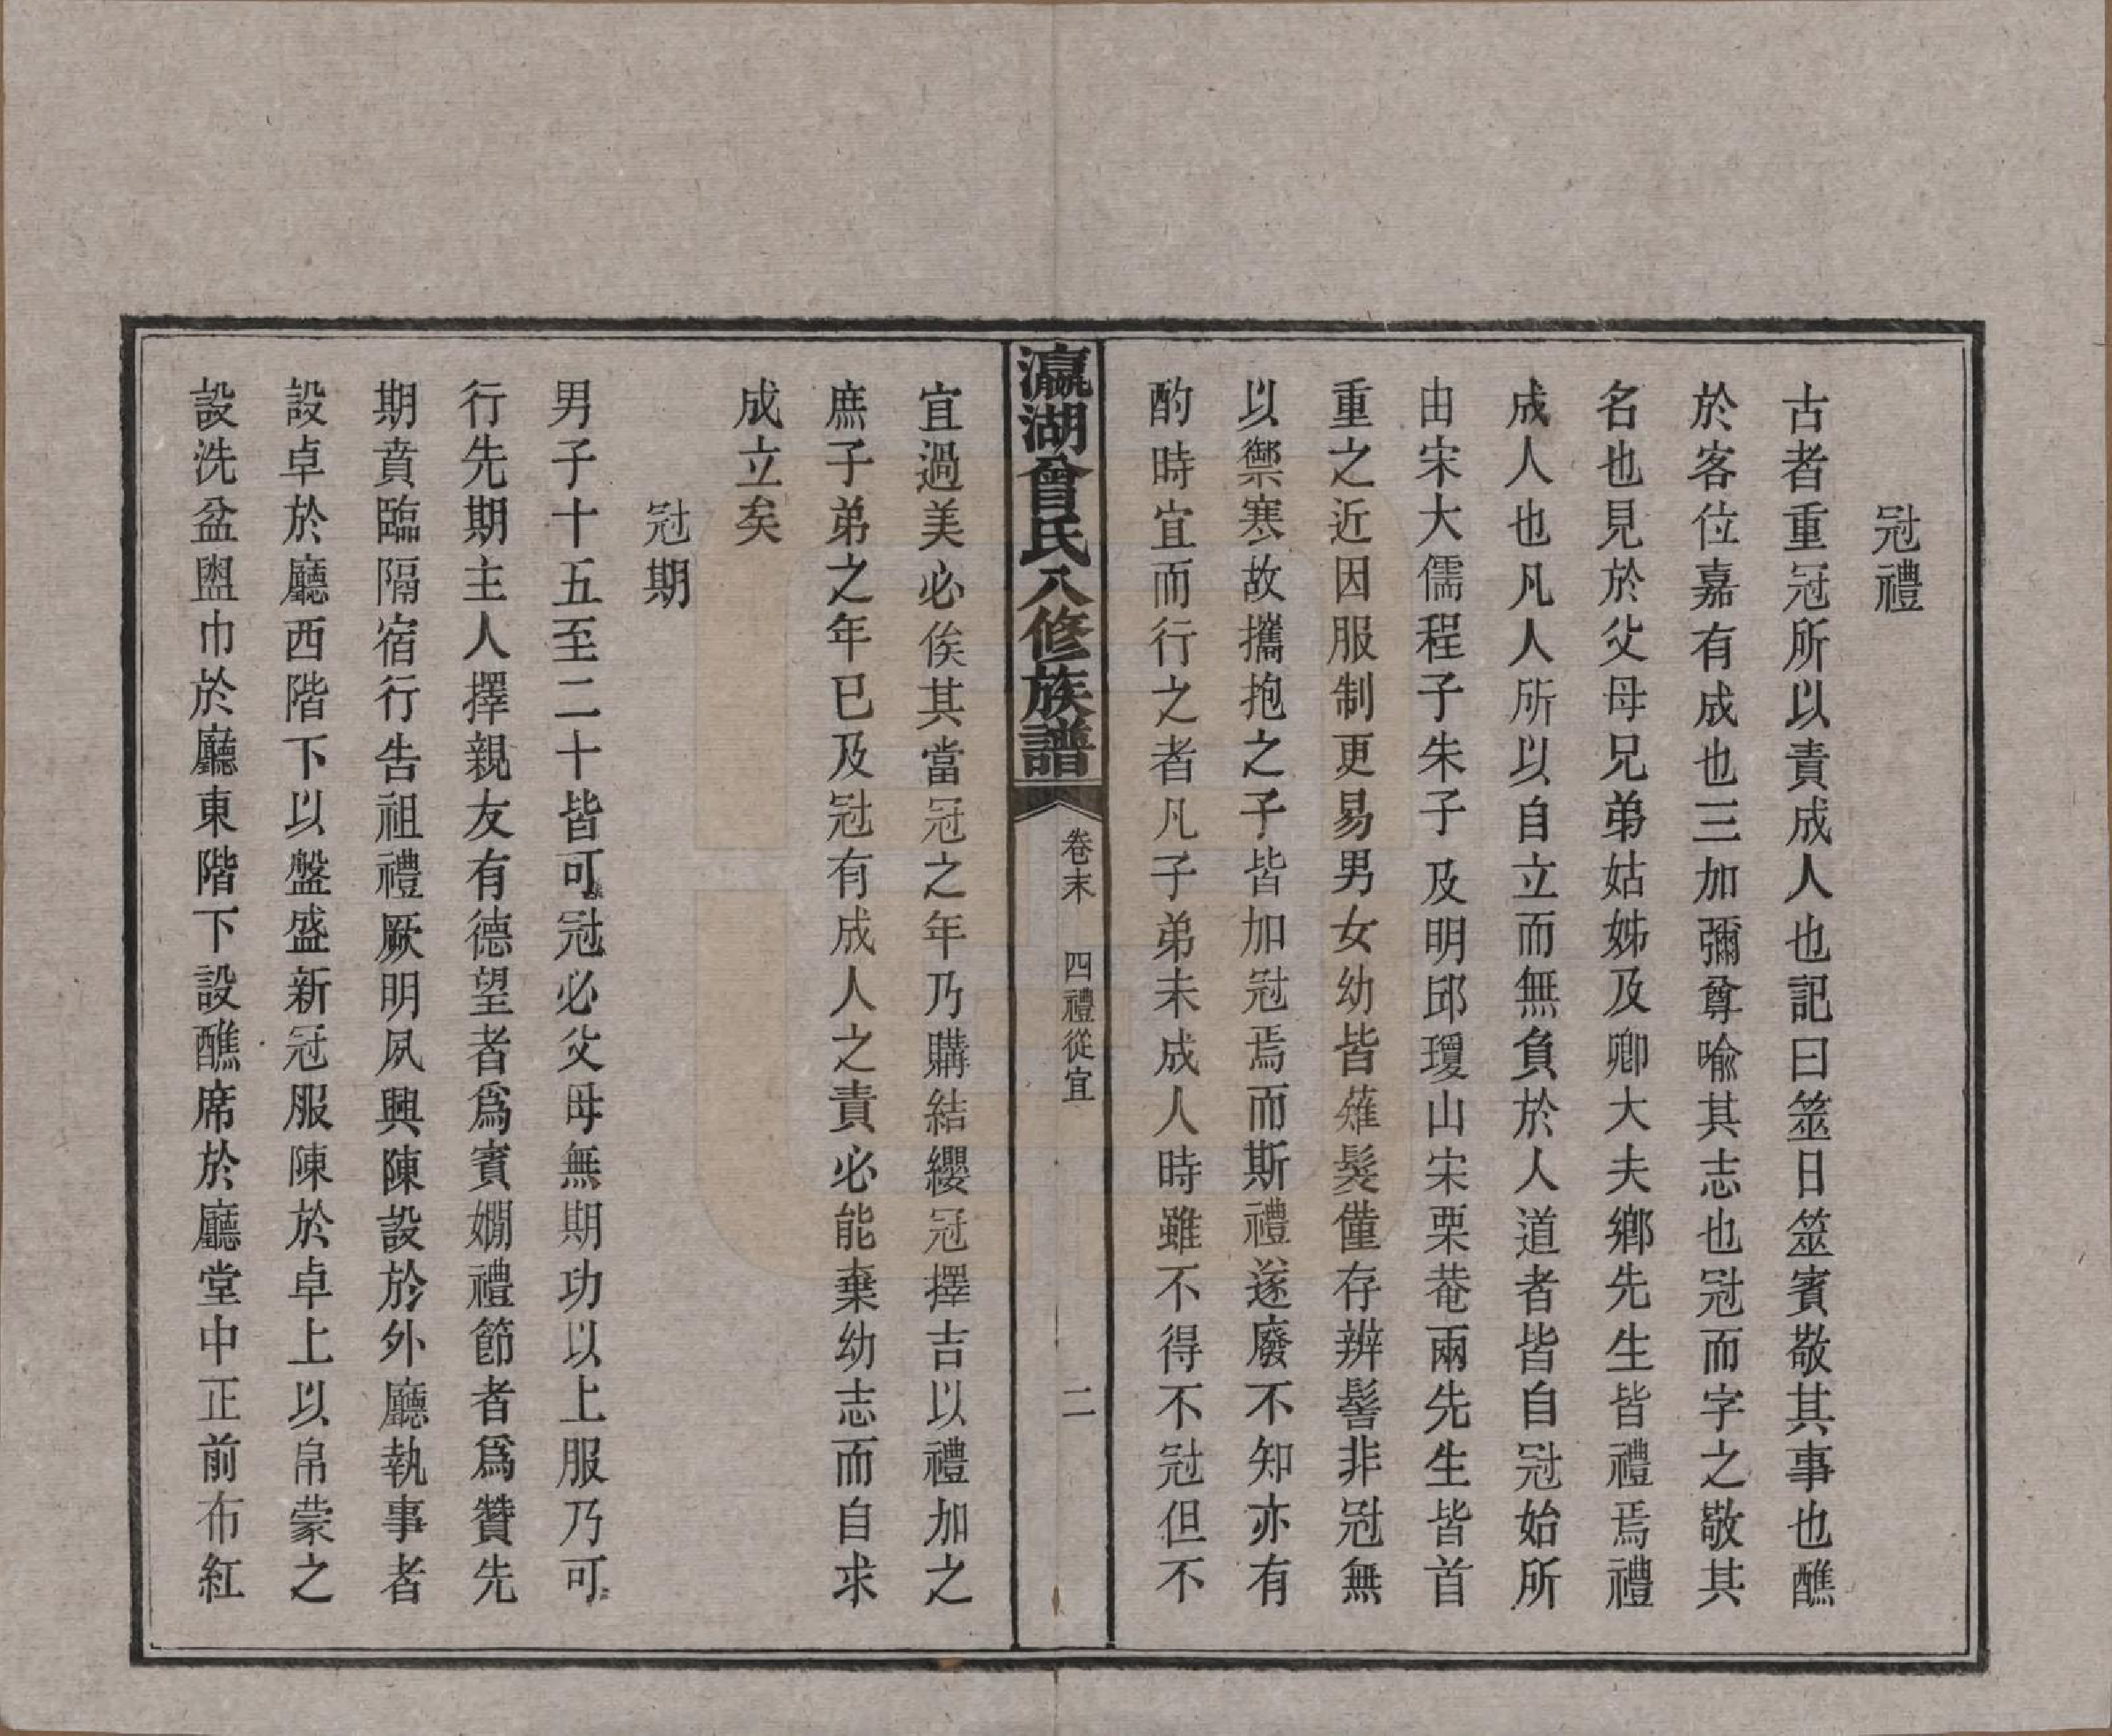 冠禮
古者重冠所以責成人也記曰筮日筮賓敬其事也醮
於客位嘉有成也三加彌尊喻其志也冠而字之敬其
名也見於父母兄弟姑姊及卿大夫鄉先生皆禮焉禮
成人也凡人所以自立而無負於人道者皆自冠始所
由宋大儒程子朱子及明邱瓊山宋栗菴兩先生皆首
重之近因服制更易男女幼皆薙髮僅存辨髻非冠無
以禦寒故攜抱之子皆加冠焉而斯禮遂廢不知亦有
酌時宜而行之者凡子弟未成人時雖不得不冠但不
瀛湖曾氏八修族譜
卷末 四禮從宜 二
宜過美必俟其當冠之年乃購結纓冠擇吉以禮加之
庶子弟之年已及冠有成人之責必能棄幼志而自求
成立矣
冠期
男子十五至二十皆可冠必父母無期功以上服乃可
行先期主人擇親友有德望者爲賓嫻禮節者爲贊先
期賁臨隔宿行告祖禮厥明夙興陳設於外廳執事者
設卓於廳西階下以盤盛新冠服陳於卓上以帛蒙之
設洗盆盥巾於廳東階下設醮席於廳堂中正前布紅